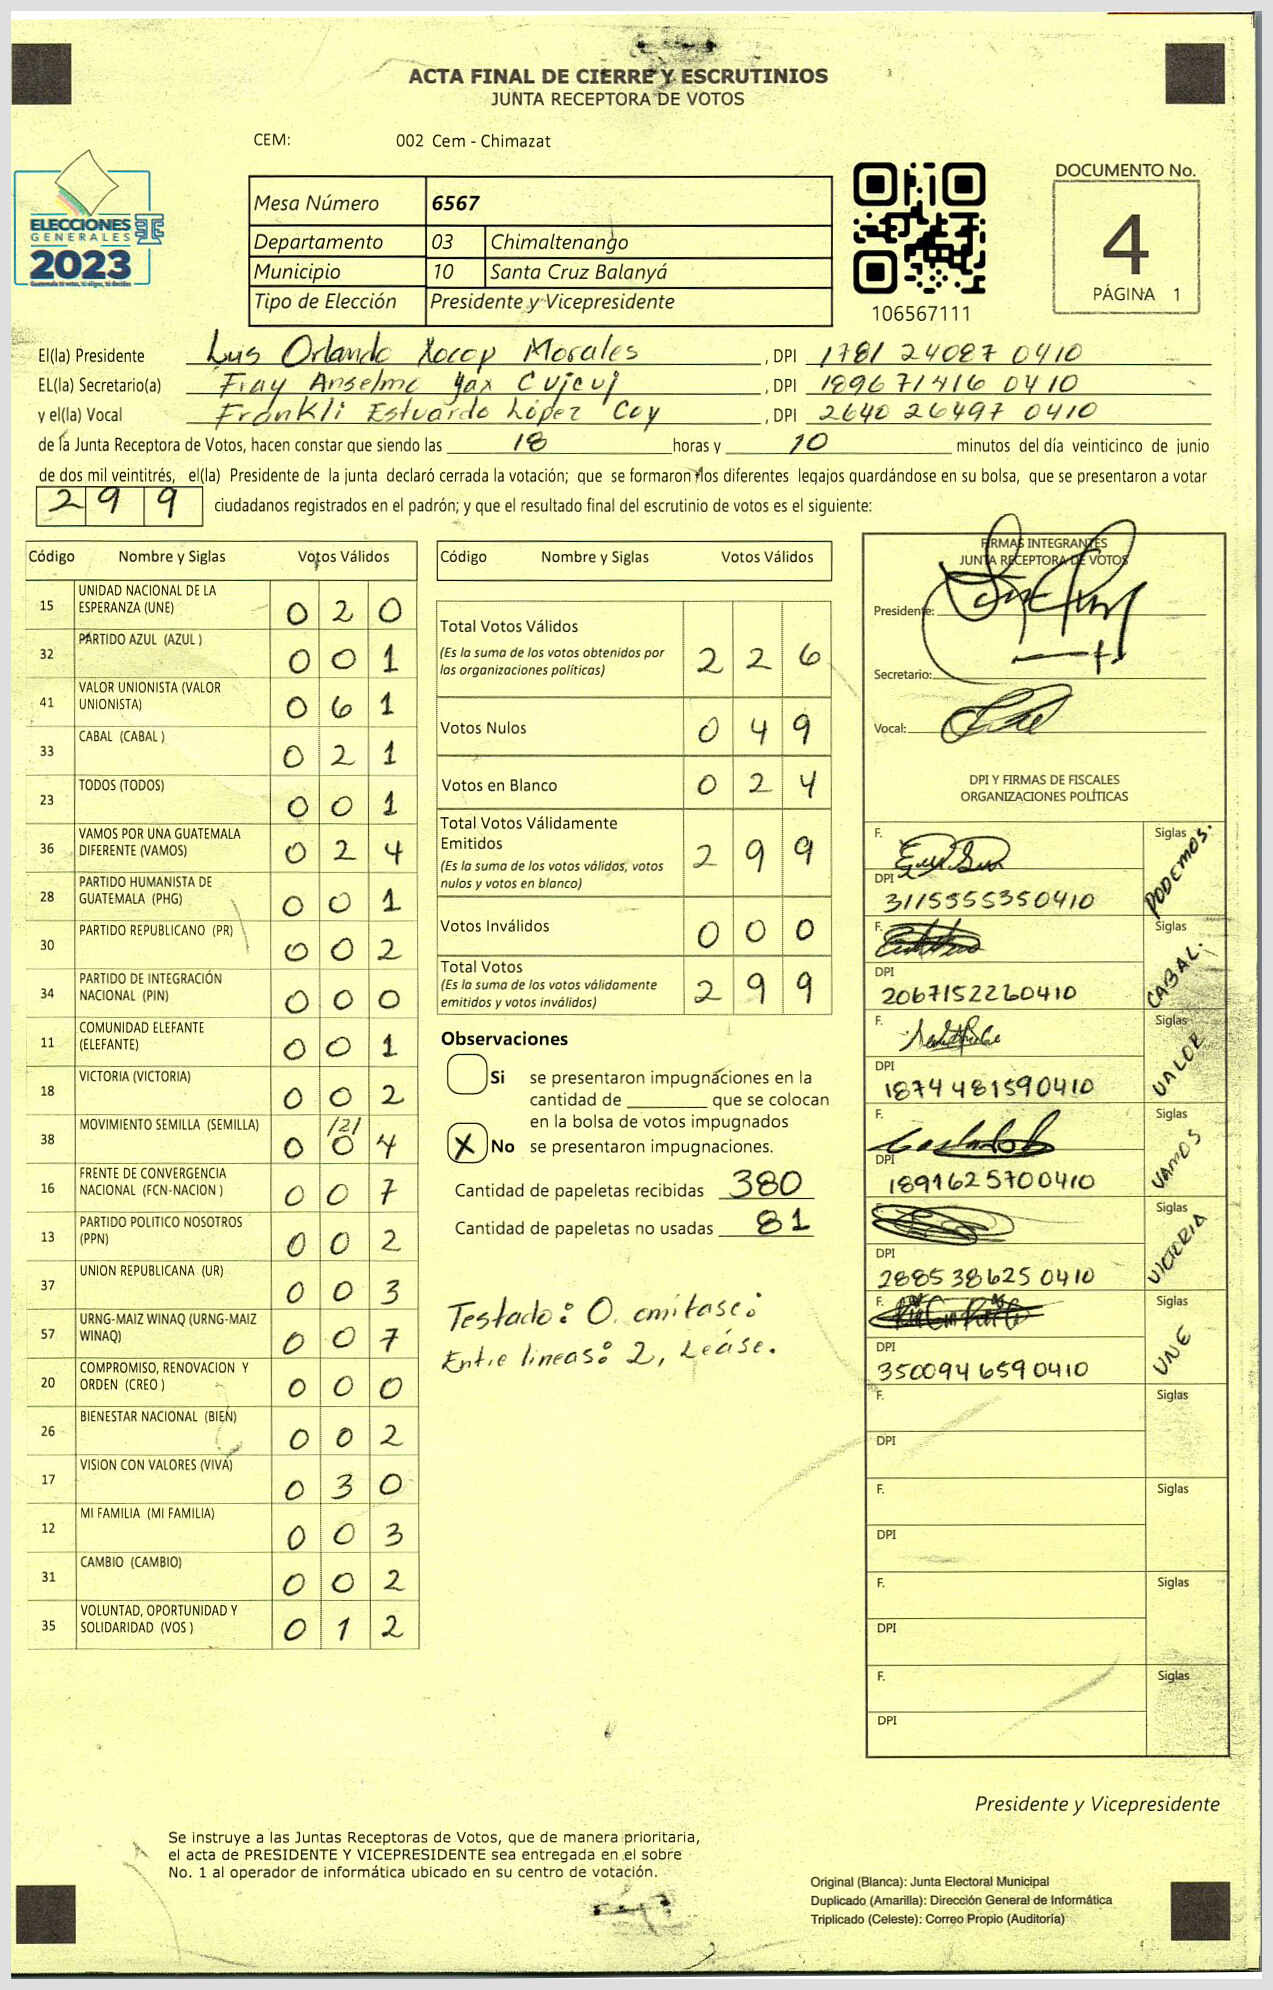 ACTA FINAL DE CIERRE Y ESCRUTINIOS
JUNTA RECEPTORA DE VOTOS
CEM: 002 Cem - Chimazat
ELECCIONES
GENERALES
2023
Mesa Número 6567
Departamento 03 Chimaltenango
Municipio 10 Santa Cruz Balanyá
Tipo de Elección Presidente y Vicepresidente
106567111
DOCUMENTO No.
4
PÁGINA 1
El(la) Presidente Luis Orlando Xocop Morales, DPI 1781 24087 0410
EL(la) Secretario(a) Fray Anselmo Yax Cujcuj, DPI 1896 71416 0410
y el(la) Vocal Frankli Estuardo López Coy, DPI 2640 26497 0410
de la Junta Receptora de Votos, hacen constar que siendo las 18 horas y 10 minutos del día veinticinco de junio
de dos mil veintitrés, el(la) Presidente de la junta declaró cerrada la votación; que se formaron los diferentes legajos quardándose en su bolsa, que se presentaron a votar
299 ciudadanos registrados en el padrón; y que el resultado final del escrutinio de votos es el siguiente:
Código Nombre y Siglas Votos Válidos
15 UNIDAD NACIONAL DE LA ESPERANZA (UNE) 0 2 0
32 PARTIDO AZUL (AZUL ) 0 0 1
41 VALOR UNIONISTA (VALOR UNIONISTA) 0 6 1
33 CABAL (CABAL ) 0 2 1
23 TODOS (TODOS) 0 0 1
36 VAMOS POR UNA GUATEMALA DIFERENTE (VAMOS) 0 2 4
28 PARTIDO HUMANISTA DE GUATEMALA (PHG) 0 0 1
30 PARTIDO REPUBLICANO (PR) 0 0 2
34 PARTIDO DE INTEGRACIÓN NACIONAL (PIN) 0 0 0
11 COMUNIDAD ELEFANTE (ELEFANTE) 0 0 1
18 VICTORIA (VICTORIA) 0 0 2
38 MOVIMIENTO SEMILLA (SEMILLA) 0 /2/ 0 4
16 FRENTE DE CONVERGENCIA NACIONAL (FCN-NACION ) 0 0 7
13 PARTIDO POLITICO NOSOTROS (PPN) 0 0 2
37 UNION REPUBLICANA (UR) 0 0 3
57 URNG-MAIZ WINAQ (URNG-MAIZ WINAQ) 0 0 7
20 COMPROMISO, RENOVACION Y ORDEN (CREO ) 0 0 0
26 BIENESTAR NACIONAL (BIEN) 0 0 2
17 VISION CON VALORES (VIVA) 0 3 0
12 MI FAMILIA (MI FAMILIA) 0 0 3
31 CAMBIO (CAMBIO) 0 0 2
35 VOLUNTAD, OPORTUNIDAD Y SOLIDARIDAD (VOS ) 0 1 2
Código Nombre y Siglas Votos Válidos
Total Votos Válidos 2 2 6
(Es la suma de los votos obtenidos por
las organizaciones políticas)
Votos Nulos 0 4 9
Votos en Blanco 0 2 4
Total Votos Válidamente
Emitidos 2 9 9
(Es la suma de los votos válidos, votos
nulos y votos en blanco)
Votos Inválidos 0 0 0
Total Votos 2 9 9
(Es la suma de los votos válidamente
emitidos y votos inválidos)
Observaciones
Si se presentaron impugnaciones en la
cantidad de ________ que se colocan
en la bolsa de votos impugnados
X No se presentaron impugnaciones.
Cantidad de papeletas recibidas 380
Cantidad de papeletas no usadas 81
Testado: 0. omitase:
Entre lineas: 2, Léase.
FIRMAS INTEGRANTES
JUNTA RECEPTORA DE VOTOS
Presidente:
Secretario:
Vocal:
DPI Y FIRMAS DE FISCALES
ORGANIZACIONES POLÍTICAS
F. Siglas PODEMOS.
DPI 3115555350410
F. Siglas CABAL.
DPI 2067152260410
F. Siglas VALOR
DPI 1874 481590410
F. Siglas VAMOS
DPI 1891625700410
F. Siglas VICTORIA
DPI 2885 38625 0410
F. Siglas UNE
DPI 350094 6590410
F. Siglas
DPI
F. Siglas
DPI
F. Siglas
DPI
F. Siglas
DPI
Presidente y Vicepresidente
Se instruye a las Juntas Receptoras de Votos, que de manera prioritaria,
el acta de PRESIDENTE Y VICEPRESIDENTE sea entregada en el sobre
No. 1 al operador de informática ubicado en su centro de votación.
Original (Blanca): Junta Electoral Municipal
Duplicado (Amarilla): Dirección General de Informática
Triplicado (Celeste): Correo Propio (Auditoría)